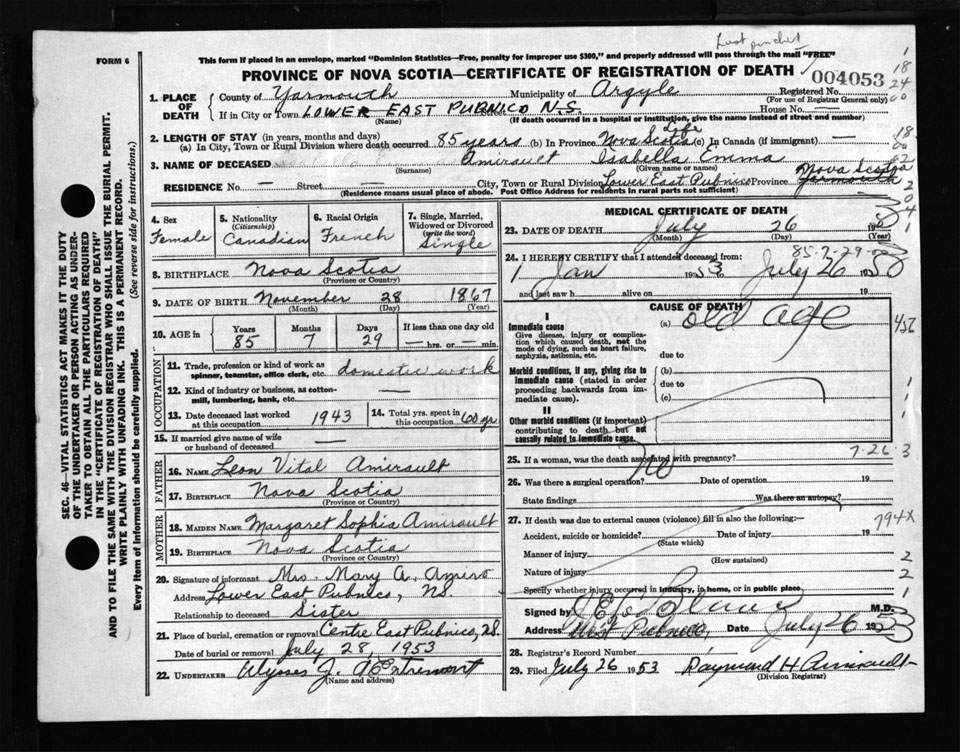 Last punched
FORM 6
This form if placed in an envelope, marked "Dominion Statistics—Free, penalty for improper use $300," and properly addressed will pass through the mail "FREE"
PROVINCE OF NOVA SCOTIA—CERTIFICATE OF REGISTRATION OF DEATH
004053
1. PLACE OF DEATH County of Yarmouth Municipality of Argyle Registered No.
(For use of Registrar General only)
If in City or Town LOWER EAST PUBNICO N.S. Street House No. —
(Name) (If death occurred in a hospital or institution, give the name instead of street and number)
2. LENGTH OF STAY (in years, months and days)
(a) In City, Town or Rural Division where death occurred 85 years (b) In Province Nova Scotia Life (c) In Canada (if immigrant) —
3. NAME OF DECEASED Amirault Isabella Emma
(Surname) (Given name or names)
RESIDENCE No. — Street — City, Town or Rural Division Lower East Pubnico Province Nova Scotia Yarmouth
(Residence means usual place of abode. Post Office Address for residents in rural parts not sufficient)
4. Sex Female
5. Nationality (Citizenship) Canadian
6. Racial Origin French
7. Single, Married, Widowed or Divorced (write the word) Single
8. BIRTHPLACE Nova Scotia
(Province or Country)
9. DATE OF BIRTH November 28 1867
(Month) (Day) (Year)
10. AGE in Years 85 Months 7 Days 29 If less than one day old — hrs. or — min.
OCCUPATION
11. Trade, profession or kind of work as spinner, teamster, office clerk, etc. domestic work
12. Kind of industry or business, as cotton-mill, lumbering, bank, etc. —
13. Date deceased last worked at this occupation 1943
14. Total yrs. spent in this occupation 60 yr
15. If married give name of wife or husband of deceased —
FATHER
16. NAME Leon Vital Amirault
17. BIRTHPLACE Nova Scotia
(Province or Country)
MOTHER
18. MAIDEN NAME Margaret Sophia Amirault
19. BIRTHPLACE Nova Scotia
(Province or Country)
20. Signature of informant Mrs. Mary A. Amiro
Address Lower East Pubnico, NS.
Relationship to deceased Sister
21. Place of burial, cremation or removal Centre East Pubnico, N.S.
Date of burial or removal July 28, 1953
22. UNDERTAKER Ulysses J. d'Entremont
(Name and address)
MEDICAL CERTIFICATE OF DEATH
23. DATE OF DEATH July 26 19
(Month) (Day) (Year)
85-7-29-
24. I HEREBY CERTIFY that I attended deceased from:
1 Jan 1953 to July 26 1953
and last saw h alive on 19
CAUSE OF DEATH
I
Immediate cause
Give disease, injury or complication which caused death, not the mode of dying, such as heart failure, asphyxia, asthenia, etc.
(a) old age
due to
Morbid conditions, if any, giving rise to immediate cause (stated in order proceeding backwards from immediate cause).
(b)
due to
(c)
II
Other morbid conditions (if important) contributing to death but not causally related to immediate cause.
25. If a woman, was the death associated with pregnancy? No
7-26-3
26. Was there a surgical operation? Date of operation 19
State findings Was there an autopsy?
27. If death was due to external causes (violence) fill in also the following:—
794X
Accident, suicide or homicide? Date of injury 19
(State which)
Manner of injury
(How sustained)
Nature of injury
Specify whether injury occurred in industry, in home, or in public place
Signed by M.D.
Address West Pubnico, Date July 26 1953
28. Registrar's Record Number
29. Filed July 26 1953 Raymond H Amirault
(Division Registrar)
SEC. 46—VITAL STATISTICS ACT MAKES IT THE DUTY
OF THE UNDERTAKER OR PERSON ACTING AS UNDERTAKER
TO OBTAIN ALL THE PARTICULARS REQUIRED
IN THE "CERTIFICATE OF REGISTRATION OF DEATH"
AND TO FILE THE SAME WITH THE DIVISION REGISTRAR WHO SHALL ISSUE THE BURIAL PERMIT.
WRITE PLAINLY WITH UNFADING INK. THIS IS A PERMANENT RECORD.
Every item of Information should be carefully supplied. (See reverse side for instructions.)